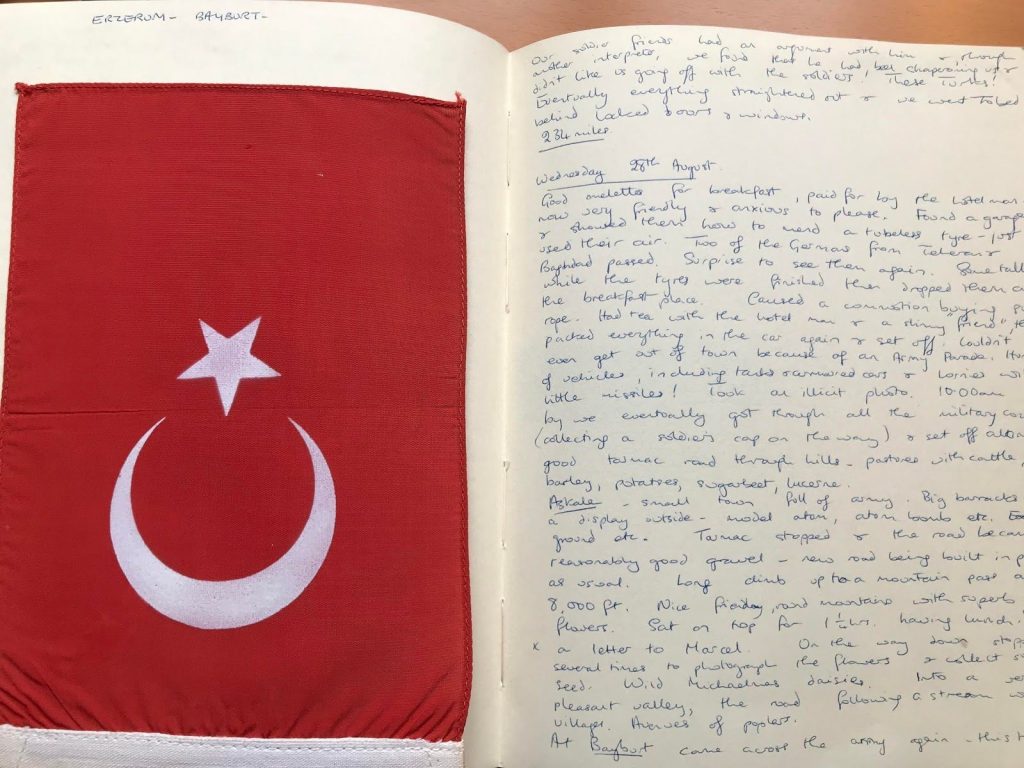 ERZERUM - BAYBURT -
Our soldier friends had an argument with him &, through
another interpreter, we found that he had been chaperoning us &
didn't like us going off with the soldiers! These Turks!
Eventually everything straightened out & we went to bed
behind locked doors & windows.
234 miles.
Wednesday 28th August.
Good omelettes for breakfast, paid for by the hotel man
now very friendly & anxious to please. Found a garage
& showed them how to mend a tubeless tyre - just
used their air. Two of the Germans from Teheran &
Baghdad passed. Surprise to see them again. Some talk
while the tyres were finished then dropped them at
the breakfast place. Caused a commotion buying
rope. Had tea with the hotel man & a slimy "friend",
packed everything in the car again & set off. Couldn't
even get out of town because of an Army Parade.
of vehicles, including tanks & armoured cars & lorries
little missiles! Took an illicit photo. 10.00am
by we eventually got through all the military
(collecting a soldier's cap on the way) & set off
good tarmac road through hills - pastures with cattle,
barley, potatoes, sugarbeet, lucerne.
Aşkale - small town full of army. Big barracks
a display outside - model atom, atom bomb etc.
ground etc. Tarmac stopped & the road became
reasonably good gravel - new road being built in
as usual. Long climb up to a mountain pass
8,000 ft. Nice round mountains with superb
flowers. Sat on top for 1 1/4 hrs. having lunch.
x a letter to Marcel. On the way down
several times to photograph the flowers & collect
seed. Wild Michaelmas daisies. Into a
pleasant valley, the road following a stream
villages. Avenues of poplars.
At Bayburt came across the army again - this